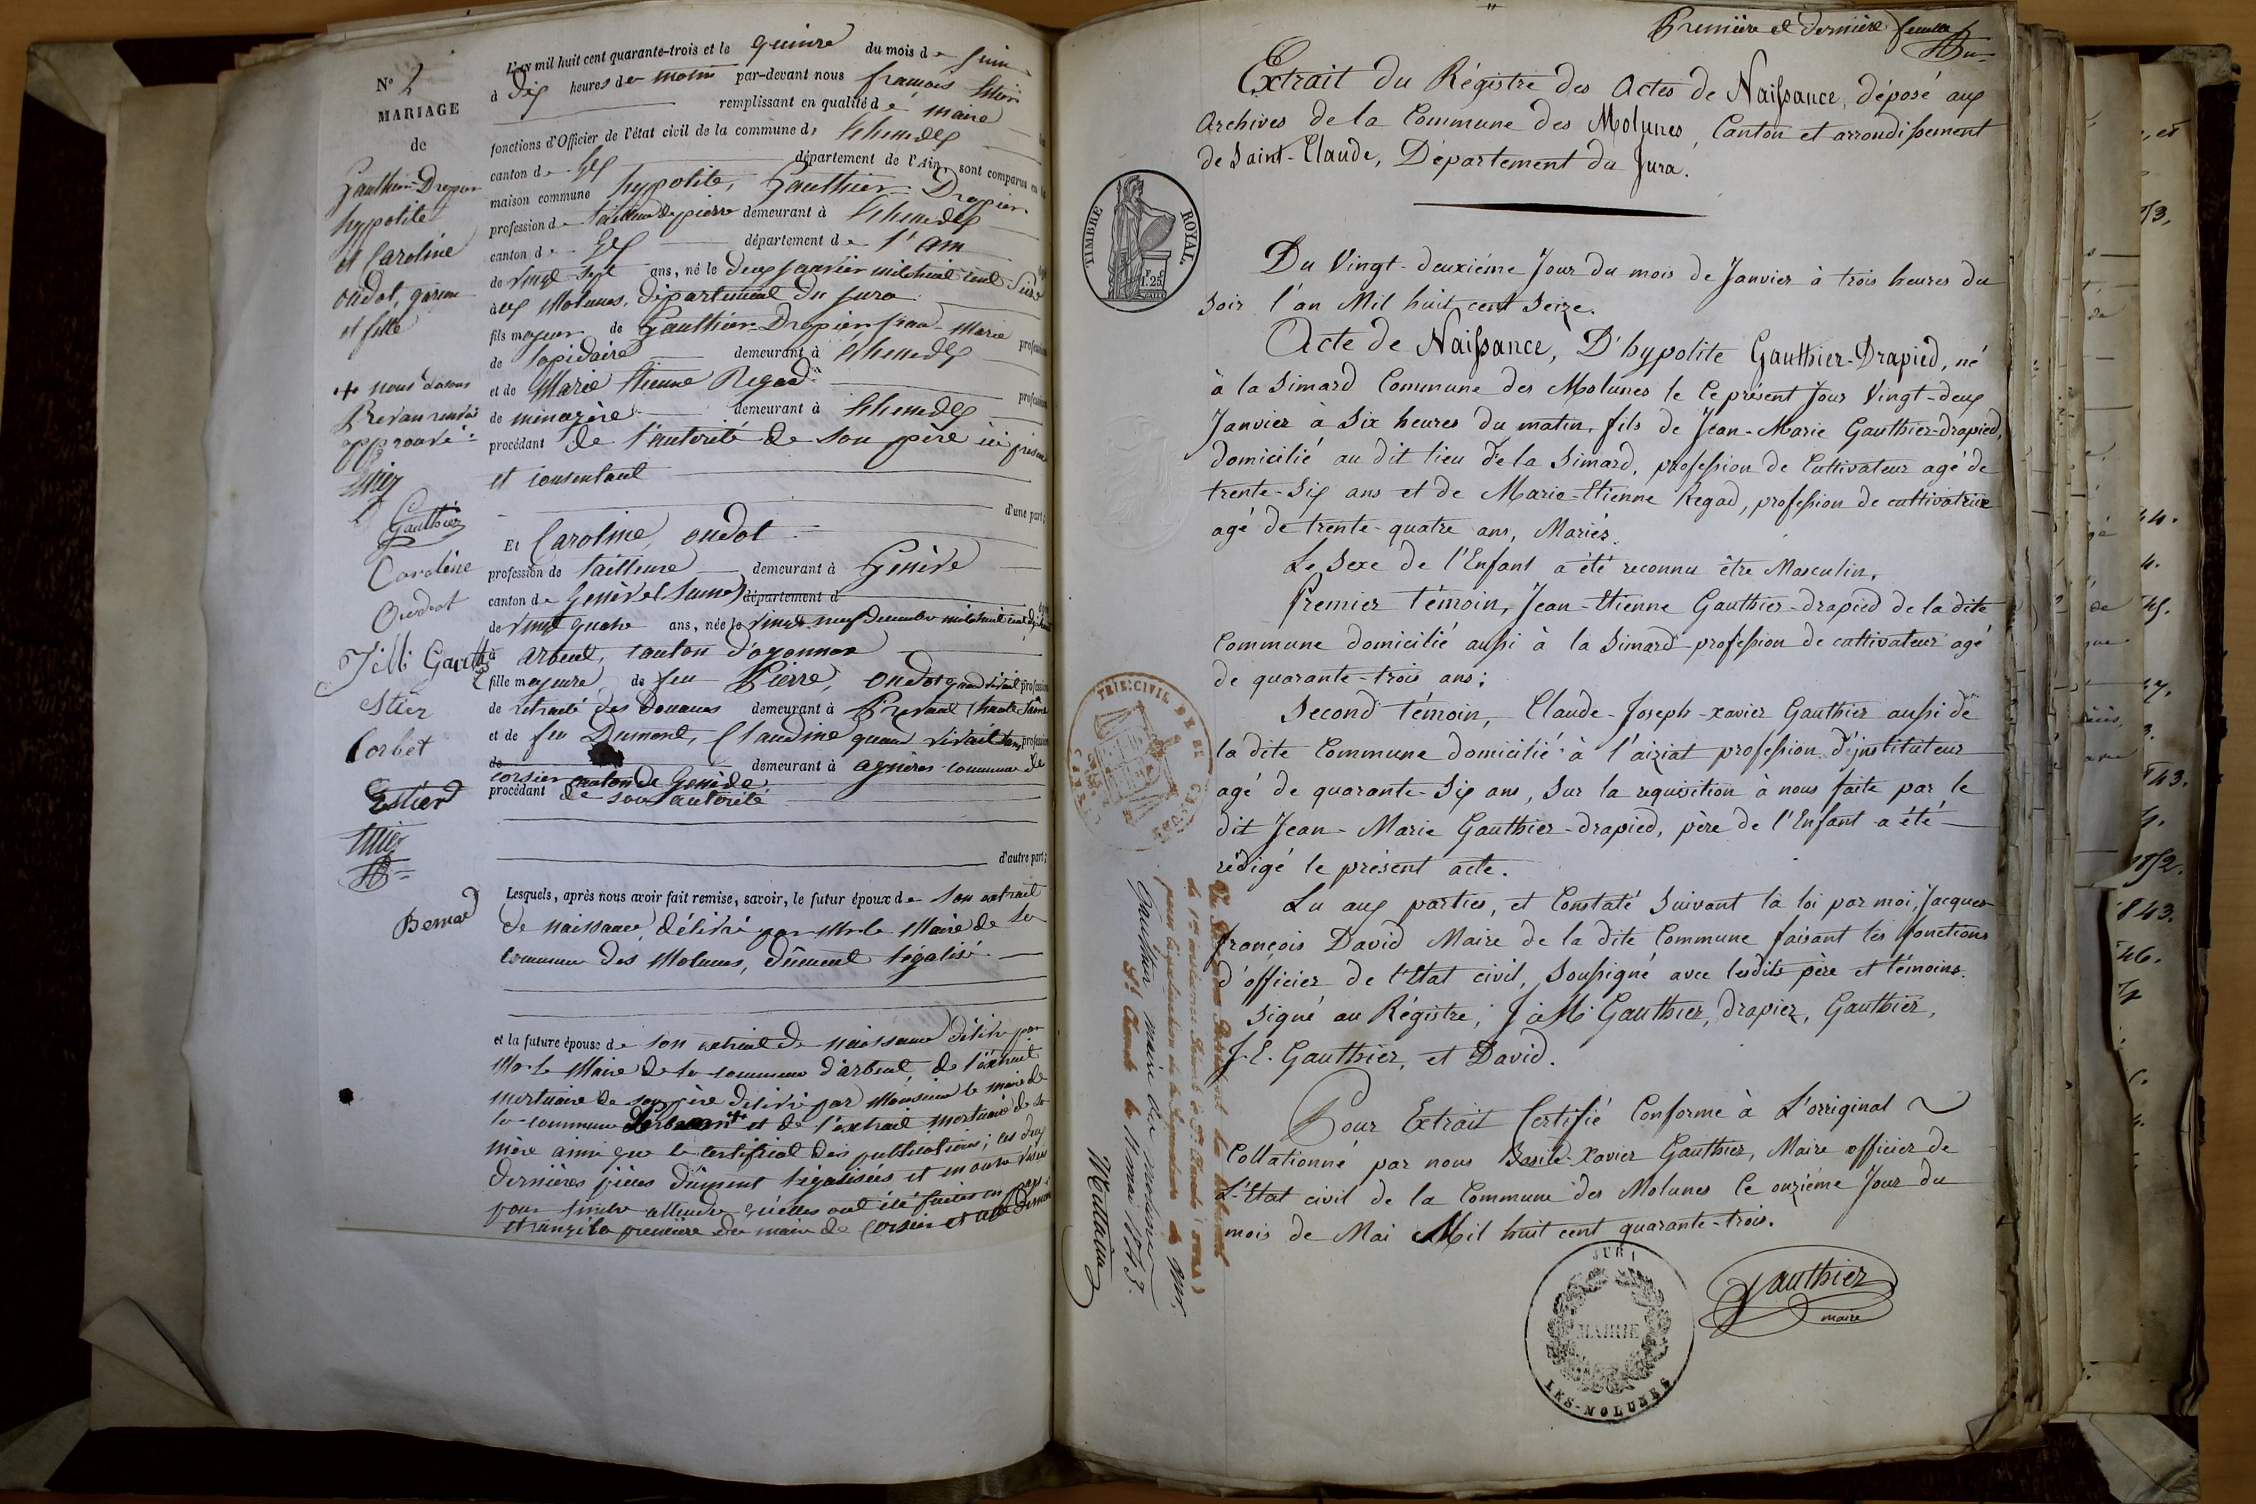 N° 2
MARIAGE
de
Gauthier-Drapier
hypolite
et Caroline
oudot, garçon
et fille
L'an mil huit cent quarante-trois et le quinze du mois de juin
à dix heures de matin par-devant nous françois
remplissant en qualité de maire
fonctions d'Officier de l'état civil de la commune d
canton de Gex département de l'Ain, sont comparus en la
maison commune hypolite, Gauthier-Drapier
profession de tailleur de pierre demeurant à
canton de Gex département de l'ain
de vingt-sept ans, né le deux janvier mil huit cent seize
aux Molunes, département du jura
fils majeur de Gauthier-Drapier jean-Marie profession
de lapidaire demeurant à
et de Marie Etienne Regad profession
de menagère demeurant à
procédant de l'autorité de son père ici présent
et consentant
d'une part;
Et Caroline oudot
profession de tailleuse demeurant à Genève
canton de Genève (Suisse) département d
de vingt quatre ans, née le vingt-neuf décembre mil huit cent dix huit
à arbent, canton d'oyonnax
fille majeure de feu Pierre, oudot quand vivait profession
de retraité des douanes demeurant à (haute Saône
et de feu Dumont, Claudine quand vivait sans profession
de demeurant à agnières commune de
corsier canton de Genève
procédant de son autorité
d'autre part;
Lesquels, après nous avoir fait remise, savoir, le futur époux de son extrait
de naissance délivré par Mr le Maire de la
commune des Molunes, dûment légalisé
et la future épouse de son extrait de naissance délivré par
Mr le Maire de la commune d'arbent, de l'extrait
mortuaire de son père délivré par Monsieur le maire de
la commune et de l'extrait mortuaire de sa
mère ainsi que le certificat des publications; les deux
dernières pièces dûment légalisées et
pour timbre attendu qu'elles ont été faites en pays
étranger la première du maire de Corsier et
nous disons
renvoi
approuvé
Gauthier
Caroline
Oudot
Corbet
Estier
Bernard
Première et dernière feuille
Extrait du Régistre des Actes de Naissance, déposé aux
Archives de la Commune des Molunes, Canton et arrondissement
de Saint-Claude, Département du Jura.
TIMBRE ROYAL
1F. 25C
Du Vingt-deuxiéme Jour du mois de Janvier à trois heures du
soir l'an Mil huit cent Seize.
Acte de Naissance, D'hypolite Gauthier-Drapied, né
à la Simard Commune des Molunes le Ce présent Jour Vingt-deux
Janvier à Six heures du matin, fils de Jean-Marie Gauthier-drapied,
domicilié au dit lieu de la Simard, profession de Cultivateur agé de
trente-Six ans et de Marie-Etienne Regad, profession de cultivatrice
agé de trente-quatre ans, Mariés.
Le Sexe de l'Enfant a été reconnu être Masculin.
Premier témoin, Jean-Etienne Gauthier-drapied de la dite
Commune domicilié aussi à la Simard profession de cultivateur agé
de quarante-trois ans;
Second témoin, Claude-Joseph-xavier Gauthier aussi de
la dite Commune domicilié à l'aiziat profession d'instituteur
agé de quarante-Six ans, Sur la requisition à nous faite par le
dit Jean-Marie Gauthier-drapied, père de l'Enfant a été
rédigé le présent acte.
Lu aux parties, et Constaté Suivant la loi par moi, Jacques
françois David Maire de la dite Commune faisant les fonctions
d'officier de l'Etat civil, Soussigné avec lesdits père et témoins.
Signé au Régistre, J à M Gauthier, drapier, Gauthier,
J. E. Gauthier, et David.
Pour Extrait Certifié Conforme à L'orriginal
Collationné par nous Basile-Xavier Gauthier, Maire officier de
L'Etat civil de la Commune des Molunes le onziéme Jour du
mois de Mai Mil huit cent quarante-trois.
Gauthier
maire
JURA
MAIRIE
LES-MOLUNES
TRIB. CIVIL DE
pour légalisation de la signature de Mr.
Gauthier maire des molunes
St Claude le 11 mai 1843.